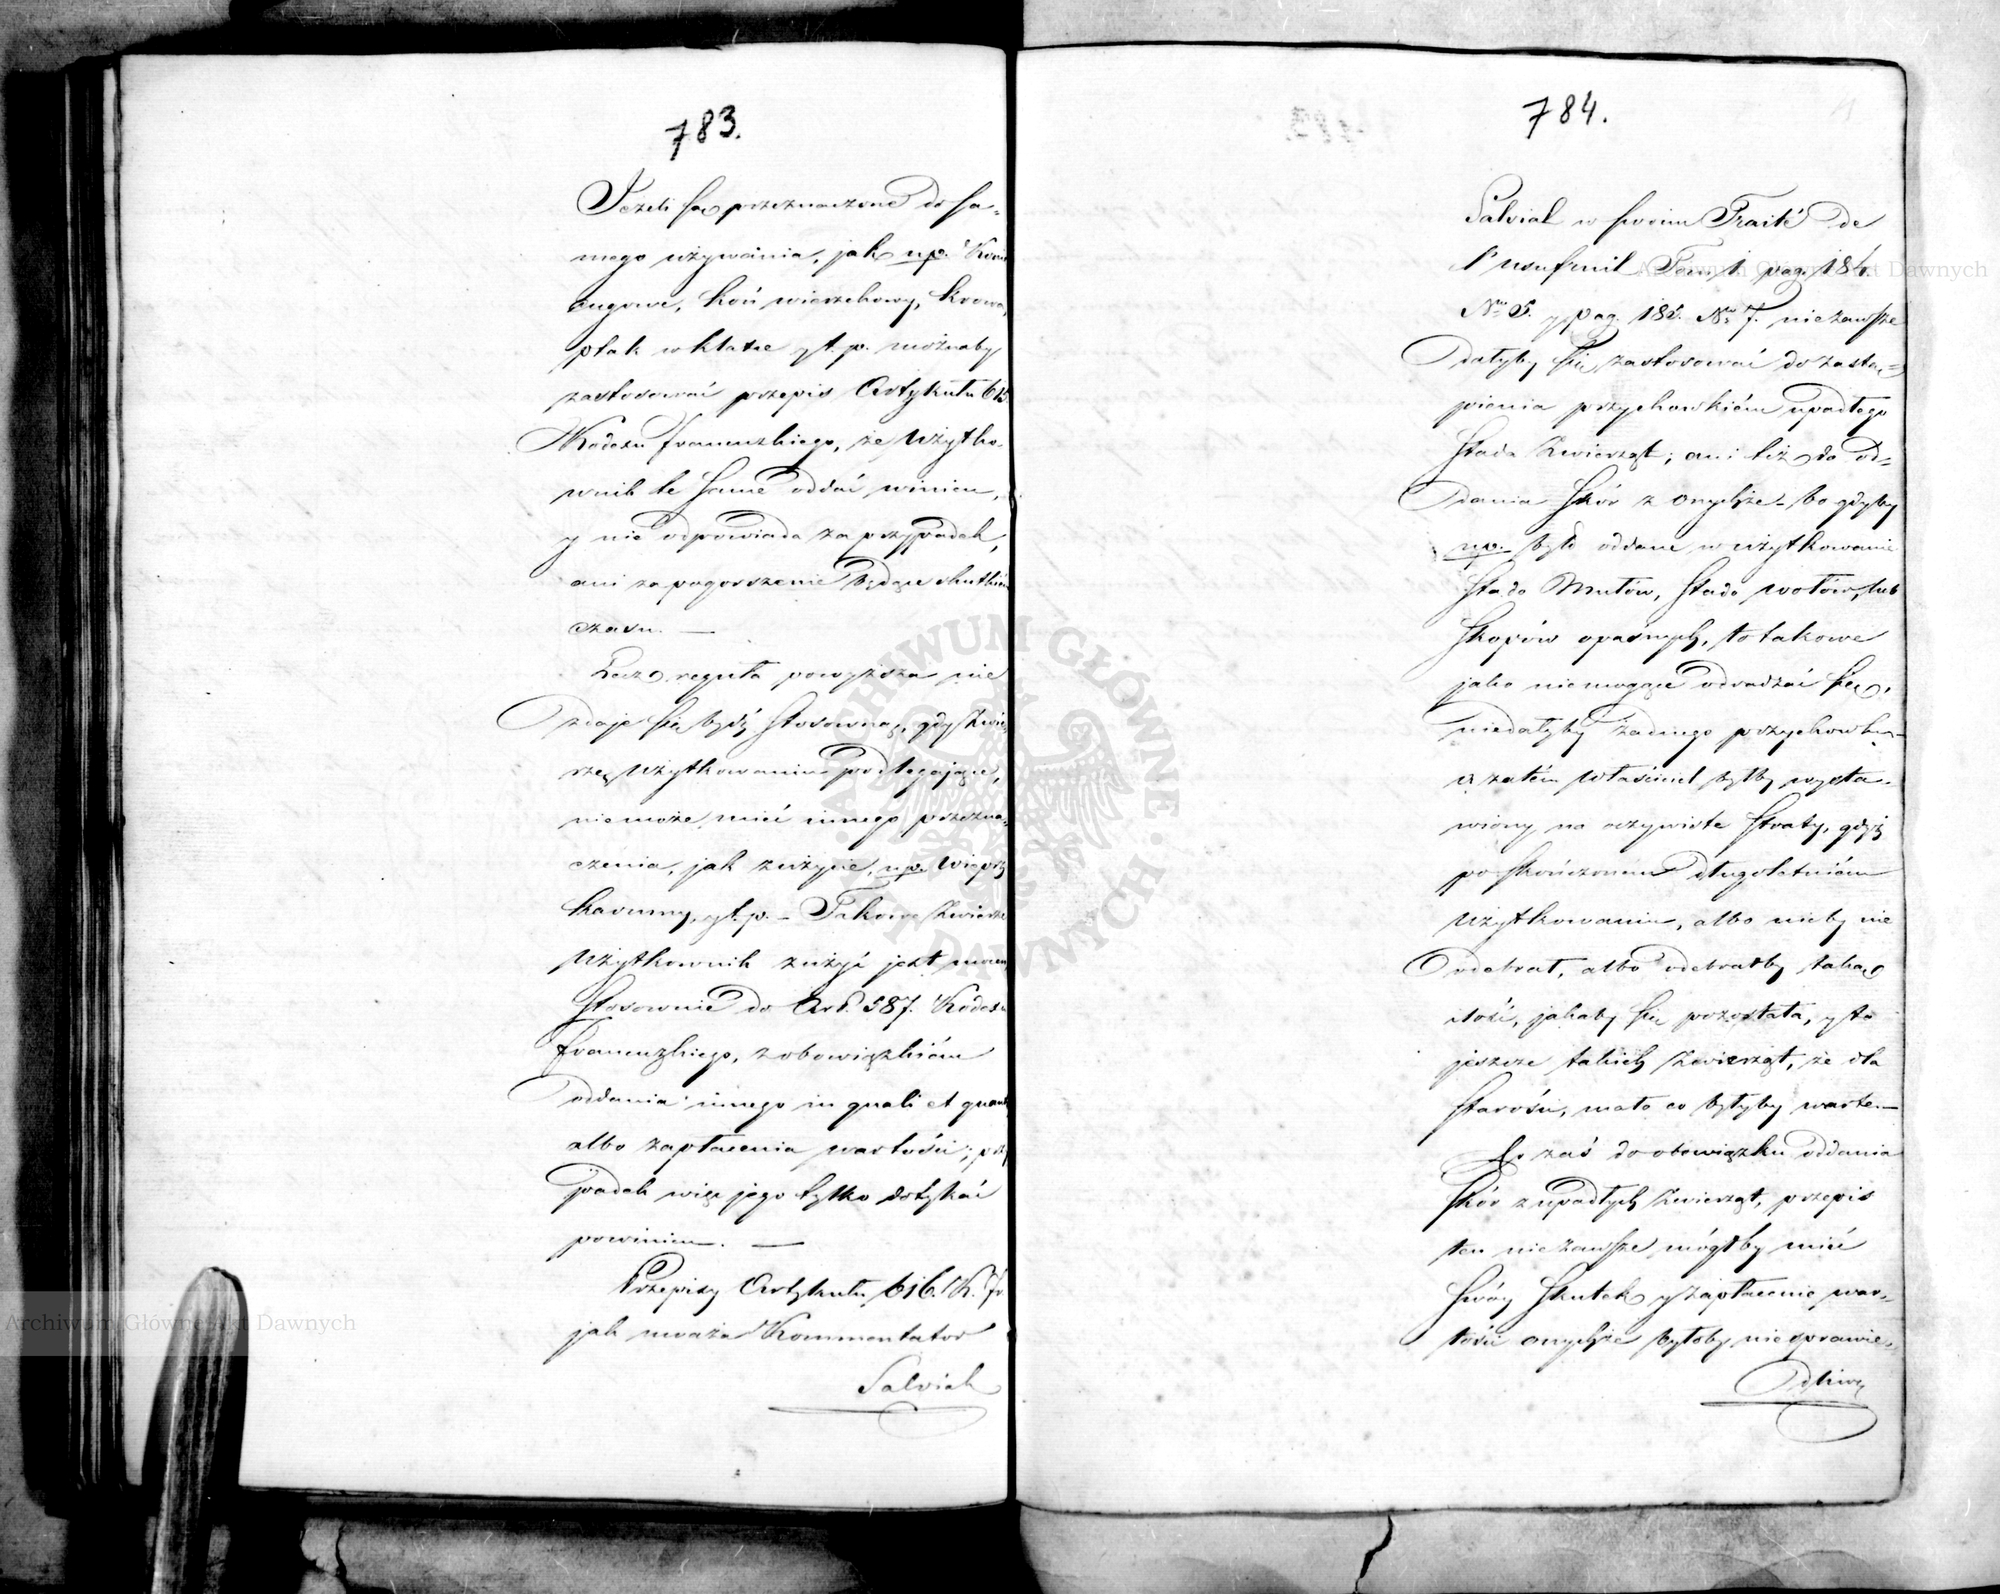 783.
Jeżeli są przeznaczone do sa-
mego używania, jak np. Konie
cugowe, koń wierzchowy, krowa,
ptak w klatce y t. p. możnaby
zastosować przepis Artykułu 615
Kodexu francuzkiego, że Użytko-
wnik te same oddać winien,
y nie odpowiada za przypadek,
ani za pogorszenie będące skutkiem
czasu. —
Lecz reguła powyższa nie
zdaje się bydź stosowną, gdy zwie-
rzę użytkowaniu podlegające,
niemoże mieć innego przezna-
czenia, jak zużycie, np. wieprz
karmny, y t. p. — Takowe zwierzę
Użytkownik zużyć jest mocen,
stosownie do Art. 587. Kodexu
francuzkiego, z obowiązkiem
oddania innego in quali et quanto
albo zapłacenia wartości; przy-
padek więc jego tylko dotykać
powinien. —
Przepisy Artykułu 616. K. fr
jak uważa Kommentator
Salviat
784.
Salviat w swoim Traité de
l'usufruit Tom 1. pag. 184.
Nro 5. y pag. 185. Nro 7. niezawsze
dałyby się zastosować do zastą-
pienia przychowkiem upadłego
stada zwierząt; ani też do od-
dania skór z onychże — bo gdyby
np. było oddane w użytkowanie
stado Mułów, stado wołów, lub
skopów opasnych, to takowe
jako niemogące odradzać się,
niedałyby żadnego przychowku —
a zatem właściciel byłby wysta-
wiony na oczywiste straty, gdyż
po skończonem długoletniem
użytkowaniu, albo nicby nie
odebrał, albo odebrałby taką
ilość, jakaby się pozostała, y to
jeszcze takich zwierząt, że dla
starości, mało co byłyby warte. —
Co zaś do obowiązku oddania
skór z upadłych zwierząt, przepis
ten niezawsze mógłby mieć
swóy skutek y zapłacenie war-
tości onychże byłoby niesprawie-
dliwe
ARCHIWUM GŁÓWNE AKT DAWNYCH
Archiwum Główne Akt Dawnych
Archiwum Główne Akt Dawnych